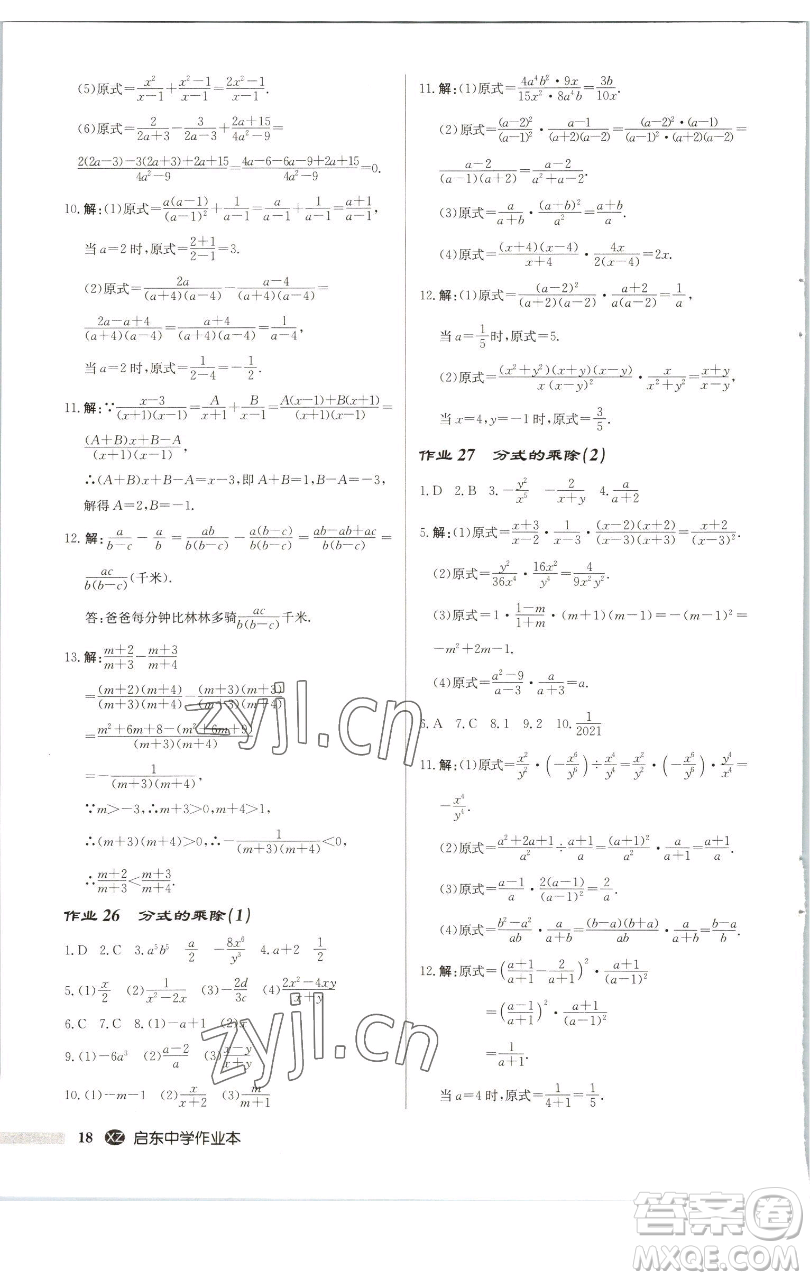 (5)原式=x²/(x-1)+(x²-1)/(x-1)=(2x²-1)/(x-1).
(6)原式=2/(2a+3)-3/(2a-3)+(2a+15)/(4a²-9)=
[2(2a-3)-3(2a+3)+2a+15]/(4a²-9)=(4a-6-6a-9+2a+15)/(4a²-9)=0.
10.解:(1)原式=a(a-1)/(a-1)²+1/(a-1)=a/(a-1)+1/(a-1)=(a+1)/(a-1),
当a=2时,原式=(2+1)/(2-1)=3.
(2)原式=2a/[(a+4)(a-4)]-(a-4)/[(a+4)(a-4)]=
(2a-a+4)/[(a+4)(a-4)]=(a+4)/[(a+4)(a-4)]=1/(a-4),
当a=2时,原式=1/(2-4)=-1/2.
11.解:∵(x-3)/[(x+1)(x-1)]=A/(x+1)+B/(x-1)=[A(x-1)+B(x+1)]/[(x+1)(x-1)]=
[(A+B)x+B-A]/[(x+1)(x-1)],
∴(A+B)x+B-A=x-3,即A+B=1,B-A=-3,
解得A=2,B=-1.
12.解:a/(b-c)-a/b=ab/[b(b-c)]-a(b-c)/[b(b-c)]=(ab-ab+ac)/[b(b-c)]=
ac/[b(b-c)](千米).
答:爸爸每分钟比林林多骑ac/[b(b-c)]千米.
13.解:(m+2)/(m+3)-(m+3)/(m+4)
=(m+2)(m+4)/[(m+3)(m+4)]-(m+3)(m+3)/[(m+3)(m+4)]
=[m²+6m+8-(m²+6m+9)]/[(m+3)(m+4)]
=-1/[(m+3)(m+4)],
∵m>-3,∴m+3>0,m+4>1,
∴(m+3)(m+4)>0,∴-1/[(m+3)(m+4)]<0,
∴(m+2)/(m+3)<(m+3)/(m+4).
作业26 分式的乘除(1)
1.D 2.C 3.a⁵b⁵ a/2 -8x⁶/y³ 4.a+2 1/2
5.(1)x/2 (2)1/(x²-2x) (3)-2d/3c (4)(2x²-4xy)/(x+y)
6.C 7.C 8.(1)-a+1 (2)x
9.(1)-6a³ (2)(a-2)/a (3)(x-y)/(x+y)
10.(1)-m-1 (2)x/(x+y) (3)m/(m+1)
18 XZ 启东中学作业本
11.解:(1)原式=(4a⁴b²·9x)/(15x²·8a⁴b)=3b/10x.
(2)原式=(a-2)²/(a-1)²·(a-1)/[(a+2)(a-2)]=(a-2)²·(a-1)/[(a-1)²·(a+2)(a-2)]=
(a-2)/[(a-1)(a+2)]=(a-2)/(a²+a-2).
(3)原式=a/(a+b)·(a+b)²/a²=(a+b)/a.
(4)原式=(x+4)(x-4)/(x+4)·4x/[2(x-4)]=2x.
12.解:(1)原式=(a-2)²/[(a+2)(a-2)]·(a+2)/[a(a-2)]=1/a,
当a=1/5时,原式=5.
(2)原式=(x²+y²)(x+y)(x-y)/[x(x-y)²]·x/(x²+y²)=(x+y)/(x-y),
当x=4,y=-1时,原式=3/5.
作业27 分式的乘除(2)
1.D 2.B 3.-y²/x⁵ -2/(x+y) 4.a/(a+2)
5.解:(1)原式=(x+3)/(x-2)·1/(x-3)·(x-2)(x+2)/[(x-3)(x+3)]=(x+2)/(x-3)².
(2)原式=y²/36x⁴·16x²/y⁴=4/9x²y².
(3)原式=1·(1-m)/(1+m)·(m+1)(m-1)=
-m²+2m-1.
(4)原式=(a²-9)/(a-3)·a/(a+3)=a.
6.A 7.C 8.1 9.2 10.1/2021
11.解:(1)原式=x²/y²·(-x⁶/y⁶)÷x⁴/y⁴=x²/y²·(-x⁶/y⁶)·y⁴/x⁴=
-x⁴/y⁴.
(2)原式=(a²+2a+1)/a²÷(a+1)/a=(a+1)²/a²·a/(a+1)=(a+1)/a.
(3)原式=a/(a-1)·2(a-1)/a²=2/a.
(4)原式=(b²-a²)/ab·a/(a+b)=(b-a)(b+a)/ab·a/(a+b)=(b-a)/b.
12.解:原式=((a+1)/(a+1)-2/(a+1))²·(a+1)/(a-1)²
=((a-1)/(a+1))²·(a+1)/(a-1)²
=1/(a+1),
当a=4时,原式=1/(4+1)=1/5.
zyjl.cn
zyjl.cn
答案卷
MXQE.COM